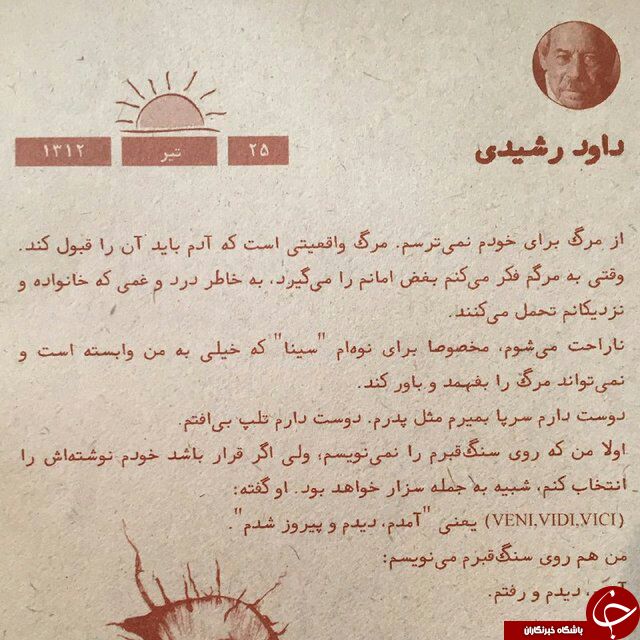 داود رشیدی
۲۵ تیر ۱۳۱۲
از مرگ برای خودم نمی‌ترسم. مرگ واقعیتی است که آدم باید آن را قبول کند.
وقتی به مرگم فکر می‌کنم بغض امانم را می‌گیرد، به خاطر درد و غمی که خانواده و
نزدیکانم تحمل می‌کنند.
ناراحت می‌شوم، مخصوصا برای نوه‌ام "سینا" که خیلی به من وابسته است و
نمی‌تواند مرگ را بفهمد و باور کند.
دوست دارم سرپا بمیرم مثل پدرم. دوست دارم تلپ بی‌افتم.
اولا من که روی سنگ‌قبرم را نمی‌نویسم، ولی اگر قرار باشد خودم نوشته‌اش را
انتخاب کنم، شبیه به جمله سزار خواهد بود. او گفته:
(VENI,VIDI,VICI) یعنی "آمدم، دیدم و پیروز شدم".
من هم روی سنگ‌قبرم می‌نویسم:
دیدم و رفتم.
باشگاه خبرنگاران